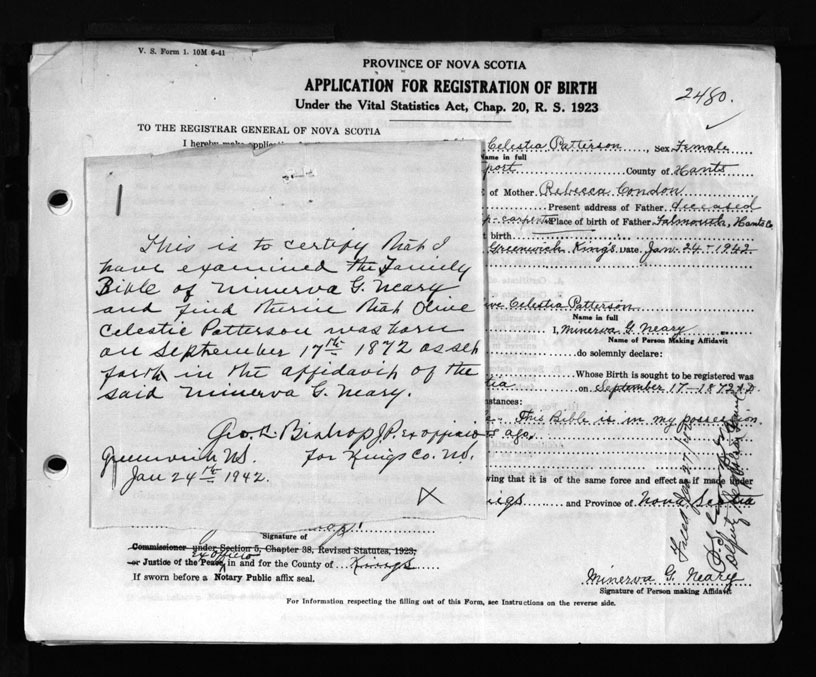 V. S. Form 1. 10M 6-41
PROVINCE OF NOVA SCOTIA
APPLICATION FOR REGISTRATION OF BIRTH
Under the Vital Statistics Act, Chap. 20, R. S. 1923
2480.
TO THE REGISTRAR GENERAL OF NOVA SCOTIA
I hereby make Celestia Patterson, Sex Female
Name in full
port County of Hants
of Mother Rebecca Condon
Present address of Father deceased
carpenter Place of birth of Father Falmouth, Hants Co
birth
Greenwich Kings Date Jan. 24 - 1942
This is to certify that I
have examined the Family
Bible of Minerva G. Neary
and find therin that Olive
Celestie Patterson was born
on September 17th 1872 as set
forth in the affidavit of the
said Minerva G. Neary.
Geo. L. Bishop J.P. Ex officio
Greenwich N.S. for Kings Co. N.S.
Jan 24th 1942.
X
ive Celestia Patterson
Name in full
I, Minerva G. Neary
Name of Person Making Affidavit
do solemnly declare:
Whose Birth is sought to be registered was
on September 17 - 1872 A.D.
This Bible is in my possession
ving that it is of the same force and effect as if made under
ings and Province of Nova Scotia
Signature of
Commissioner under Section 5, Chapter 38, Revised Statutes, 1923,
Ex officio
or Justice of the Peace, in and for the County of Kings
If sworn before a Notary Public affix seal.
Minerva G. Neary
Signature of Person making Affidavit
For Information respecting the filling out of this Form, see Instructions on the reverse side.